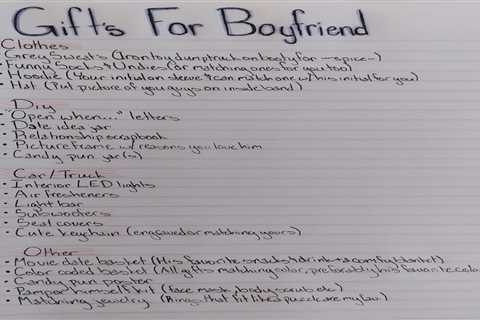 Gifts For Boyfriend
Clothes
• Grey Sweats (Iron toy dump truck on booty for ~spice~)
• Funny Socks & Undies (or matching ones for you too)
• Hoodie (Your initial on sleeve & can match one w/ his initial for you)
• Hat (Put picture of you guys on inside band)
Diy
• "Open when..." letters
• Date idea jar
• Relationship scrapbook
• Picture frame w/ reasons you love him
• Candy pun jar(s)
Car/Truck
• Interior LED lights
• Air fresheners
• Light bar
• Subwoofers
• Seat covers
• Cute Keychain (engraved or matching yours)
Other
• Movie date basket (His favorite snacks + drink + a comfy blanket)
• Color coded basket (All gifts matching color, preferably his favorite color
• Candy pun poster
• Pamper himself kit (face mask, body scrub etc.)
• Matching jewelry (Rings that fit like puzzle are my fav.)